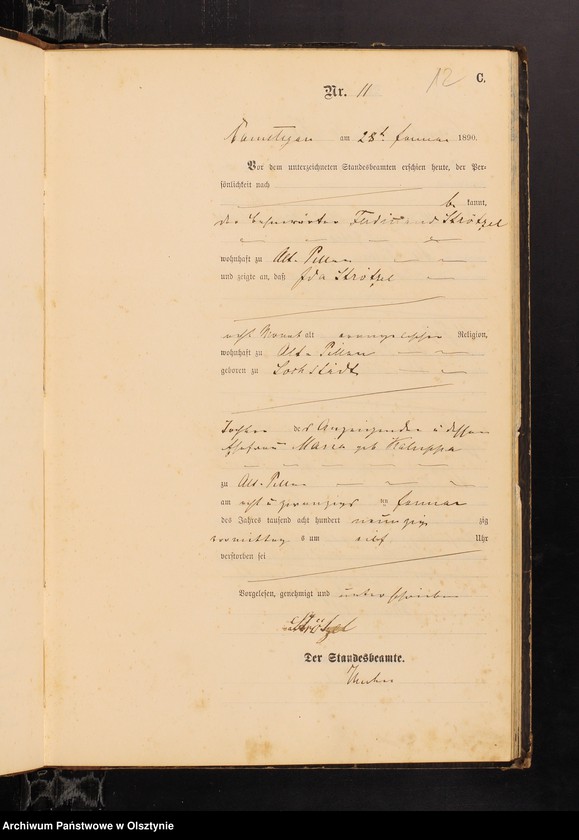 12 C.
Nr. 11
am 28t Januar 1890.
Vor dem unterzeichneten Standesbeamten erschien heute, der Per-
sönlichkeit nach
be kannt,
der Ferdinand Strötzel
wohnhaft zu Alt-Pillau
und zeigte an, daß Ida Strötzel
acht Monat alt evangelischer Religion,
wohnhaft zu Alt-Pillau
geboren zu Lochstädt
Tochter des Anzeigenden u dessen
Ehefrau Maria geb Kaluppa
zu Alt-Pillau
am acht u zwanzigs ten Januar
des Jahres tausend acht hundert neunzig zig
vormittag s um elf Uhr
verstorben sei
Vorgelesen, genehmigt und unterschrieben
Strötzel
Der Standesbeamte.
Archiwum Państwowe w Olsztynie